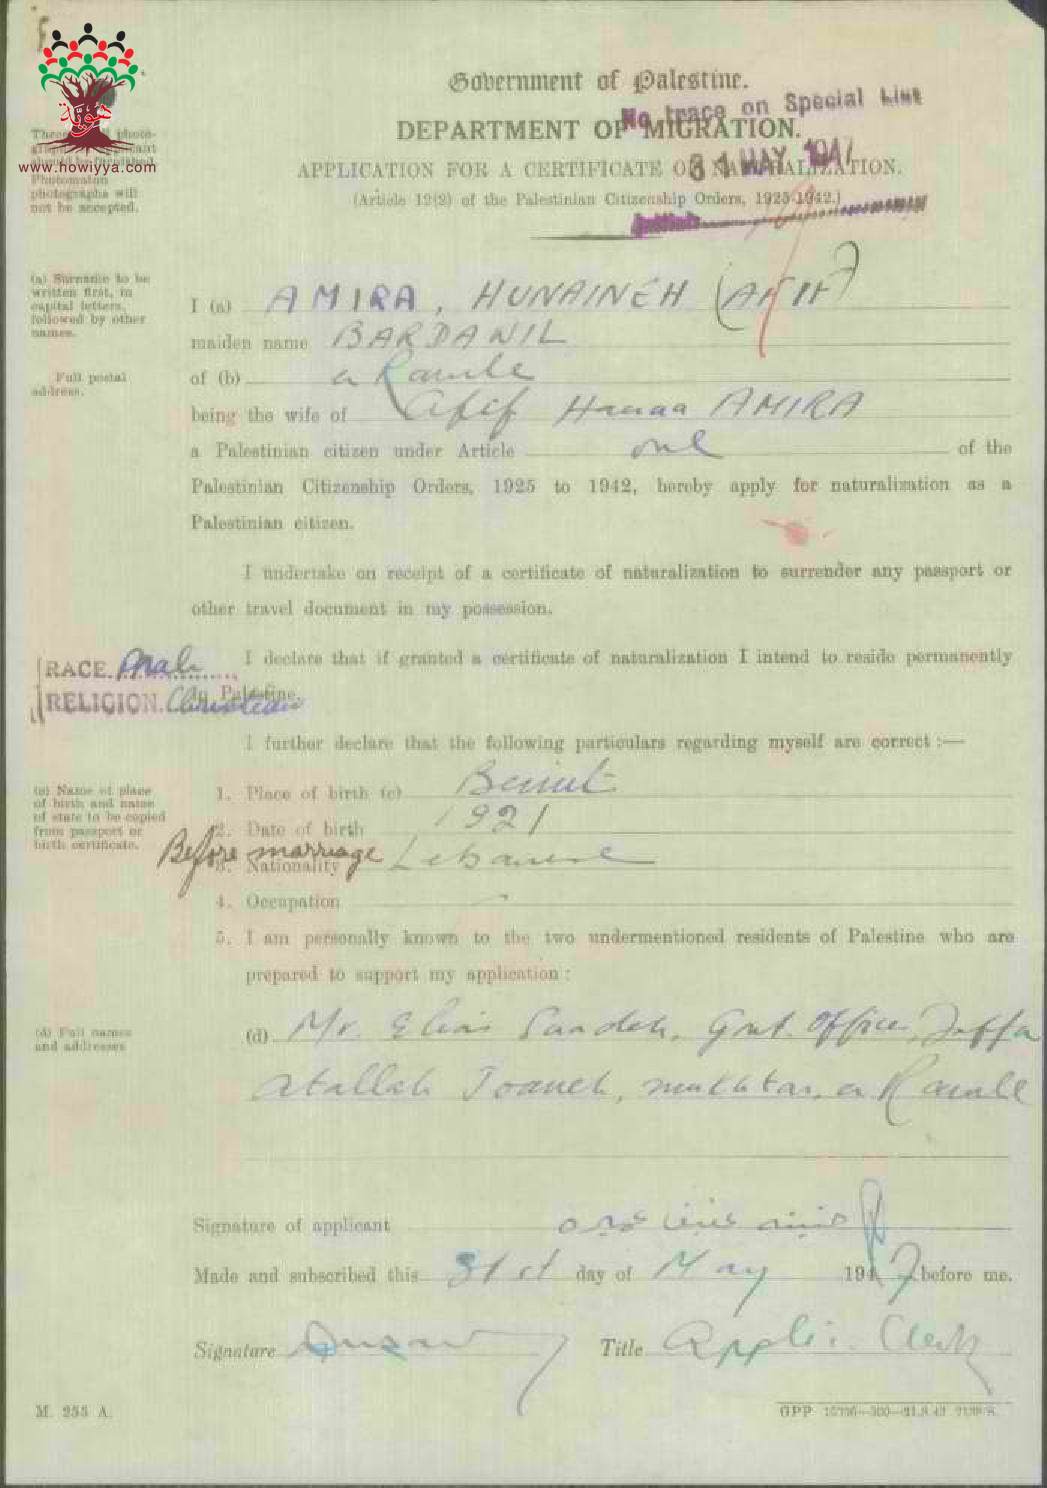 هوية
www.howiyya.com
Government of Palestine.
No trace on Special List
DEPARTMENT OF MIGRATION.
31 MAY 1947
APPLICATION FOR A CERTIFICATE OF NATURALIZATION.
(Article 12(2) of the Palestinian Citizenship Orders, 1925-1942.)
Three photo-
applicant
should be furnished.
Photomaton
photographs will
not be accepted.
(a) Surname to be
written first, in
capital letters,
followed by other
names.
I (a) AMIRA, HUNAINEH (AFIF)
maiden name BARDAWIL
Full postal
address.
of (b) er Ramle
being the wife of Afif Hanna AMIRA
a Palestinian citizen under Article one of the
Palestinian Citizenship Orders, 1925 to 1942, hereby apply for naturalization as a
Palestinian citizen.
I undertake on receipt of a certificate of naturalization to surrender any passport or
other travel document in my possession.
RACE. Arab
RELIGION. Christian
I declare that if granted a certificate of naturalization I intend to reside permanently
in Palestine.
I further declare that the following particulars regarding myself are correct :—
(c) Name of place
of birth and name
of state to be copied
from passport or
birth certificate.
1. Place of birth (c) Beirut
2. Date of birth 1921
Before marriage
3. Nationality Lebanese
4. Occupation -
5. I am personally known to the two undermentioned residents of Palestine who are
prepared to support my application :
(d) Full names
and addresses
(d) Mr. Elias Saadeh, Govt. Offices, Jaffa
Atallah Joaneh, mukhtar, er Ramle
Signature of applicant
Made and subscribed this 31st day of May 1947 before me.
Signature Title Applic. Clerk
M. 255 A.
GPP